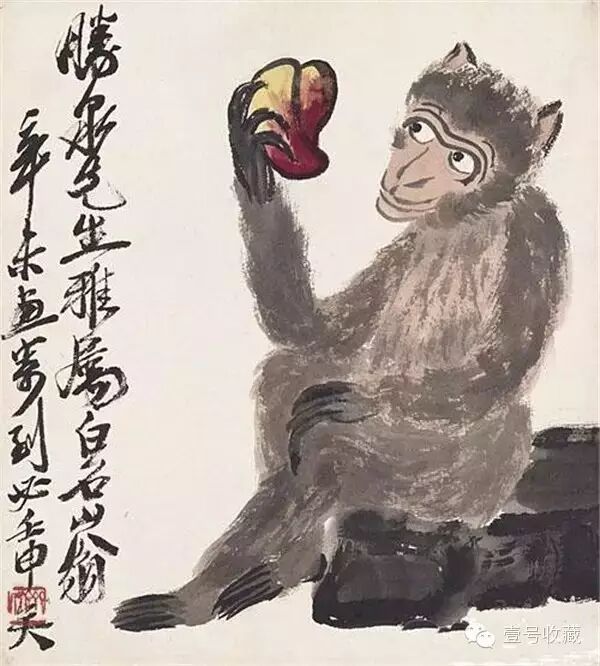 勝泉先生雅屬白石山翁
辛未畫寄到必壬申矣
壹号收藏